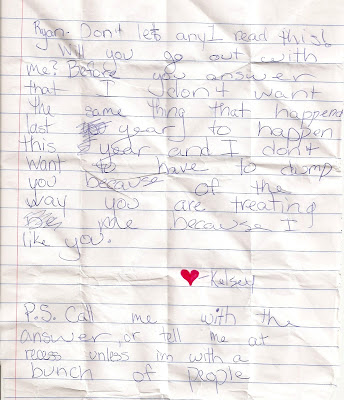 Ryan- Don't let any1 read this!
Will you go out with
me? Before you answer
that I don't want
the same thng that happend
last year to happen
this year and I don't
want to have to dump
you because of the
way you are treating
me because I
like you.
-Kelsey
P.S. Call me with the
answer, or tell me at
recess unless im with a
bunch of people